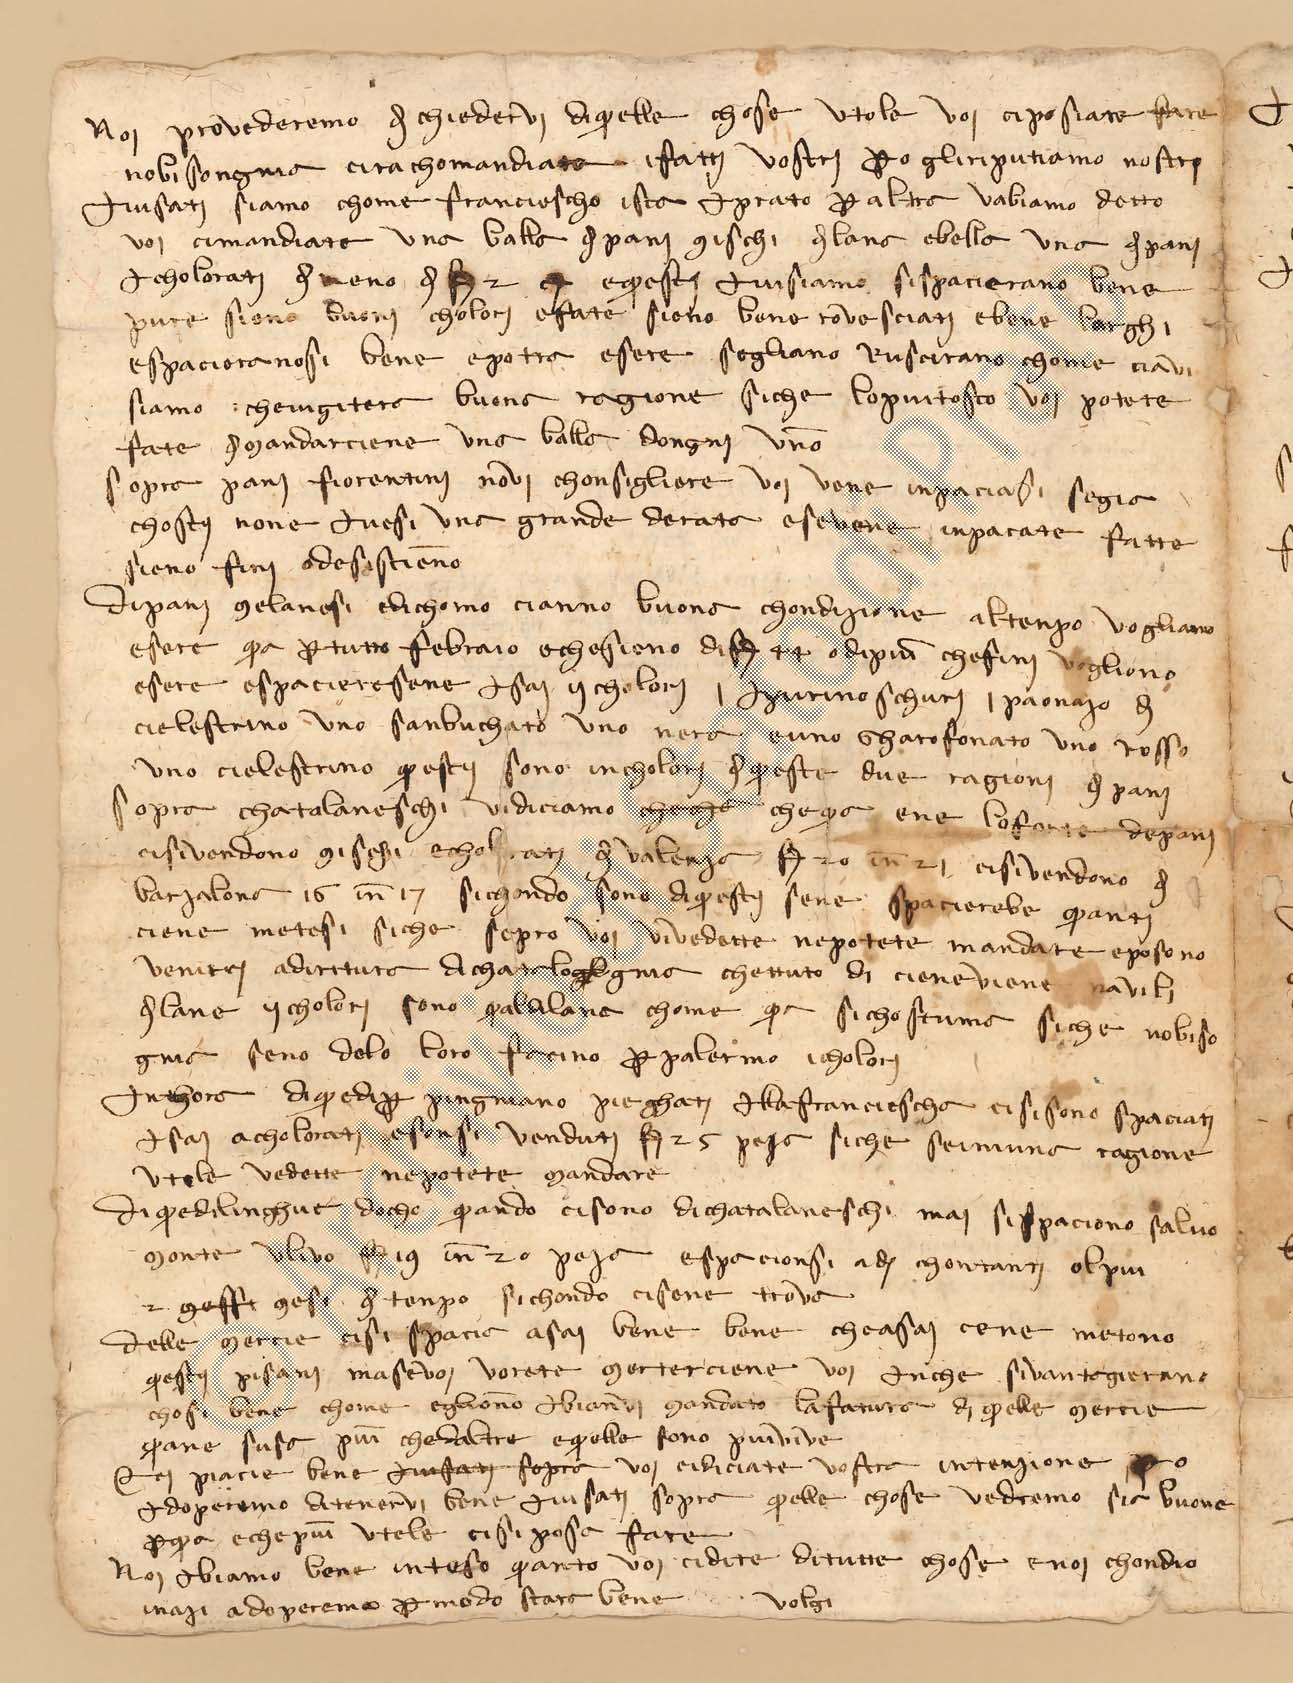 Noi provederemo di chiedervi di quelle chose utole voi ci posiate fare
no bisongna ci rachomandiate i fatti vostri però gli riputiamo nostri
Avisati siamo chome Franciescho ista a Prato per altra v'abiamo detto
voi ci mandiate una balla di pani mischi di lana e bella una di pani
acholorati di meno di f 2 e questi avisiamo si spacierano bene
pure sieno buoni cholori e fate sieno bene rovesciati e bene larghi
e spacieranosi bene e potra esere se gliano ruscirano chome ci avi
siamo che vi gitera buona ragione siche lo piu tosto voi potete
fate di mandarciene una balla d'ongni uno
sopra pani fiorentini no vi chonsigliere voi vene inpaciasi se gia
chosti none avesi una grande derata e se vene inpacate fatte
sieno fini
Di pani melanesi e di Chomo ci anno buona chondizione al tenpo vogliano
esere qua per tutto febraio e che sieno di f 44 o di piu che fini vogliono
esere e spacieresene asai i cholori 1 azurino schuri 1 paonazo di
cielestrino uno sanbuchato uno nero e uno gharofonato uno rosso
uno cielestrino questi sono in cholori di queste due ragioni di pani
sopra chatalaneschi vi diciamo che qua ene lo forte de pani
ci si vendono mischi e cholorati di Valenza f 20 in 21 ci si vendono di
Barzalona 16 in 17 sichondo sono di questi sene spacierebe quanti
ciene metesi siche sopro voi vi vedette ne potete mandare e posono
venire a dirittura di Chatalongna che tutto di ciene viene navili
di lane i cholori sono qualilana chome qua si chostuma siche no biso
gna seno delo loro facino per Palermo i cholori
Anchora di quedi Perpingniano pieghati a la francescha ci si sono spaciati
asai acholorati e sonsi venduti f 25 peza siche se niuna ragione
utele vedette ne potete mandare
Di quedi Linghue docho quando ci sono di chatalaneschi mai si spaciono salvo
Monte Ulivo f 19 in 20 peza e spacionsi a di chontanti o 'l piu
2 mesi di tenpo sichondo ci sene trova
Delle mercie ci si spacia asai bene bene che asai cene metono
questi pisani ma se voi vorete metterciene voi anche si vantegierano
chosi bene chome eglino abianvi mandato la fatura di quelle mercie
quane susa piu che l'altre e quelle sono piu vive
E ci piacie bene avisati sopra voi ci diciate vostra intenzione però
adoperemo di tenervi bene avisati sopra quelle chose vedremo sia buone
per qua e che piu utele ci si posa fare
Noi abiamo bene inteso quanto voi ci dite di tutte chose e noi chondio
inazi adoperemo per modo stara bene volgi